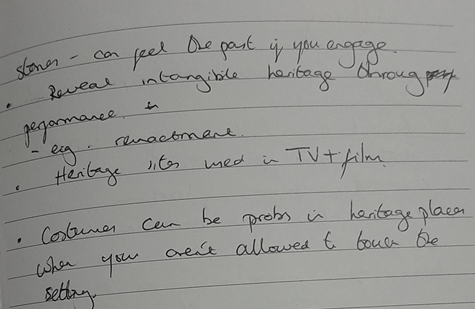 stones - can feel the past if you engage.
• Reveal intangible heritage through
performance.
- e.g. renactment.
• Heritage sites used in TV + film.
• Costumes can be probs in heritage places
when you aren't allowed to touch the
setting.